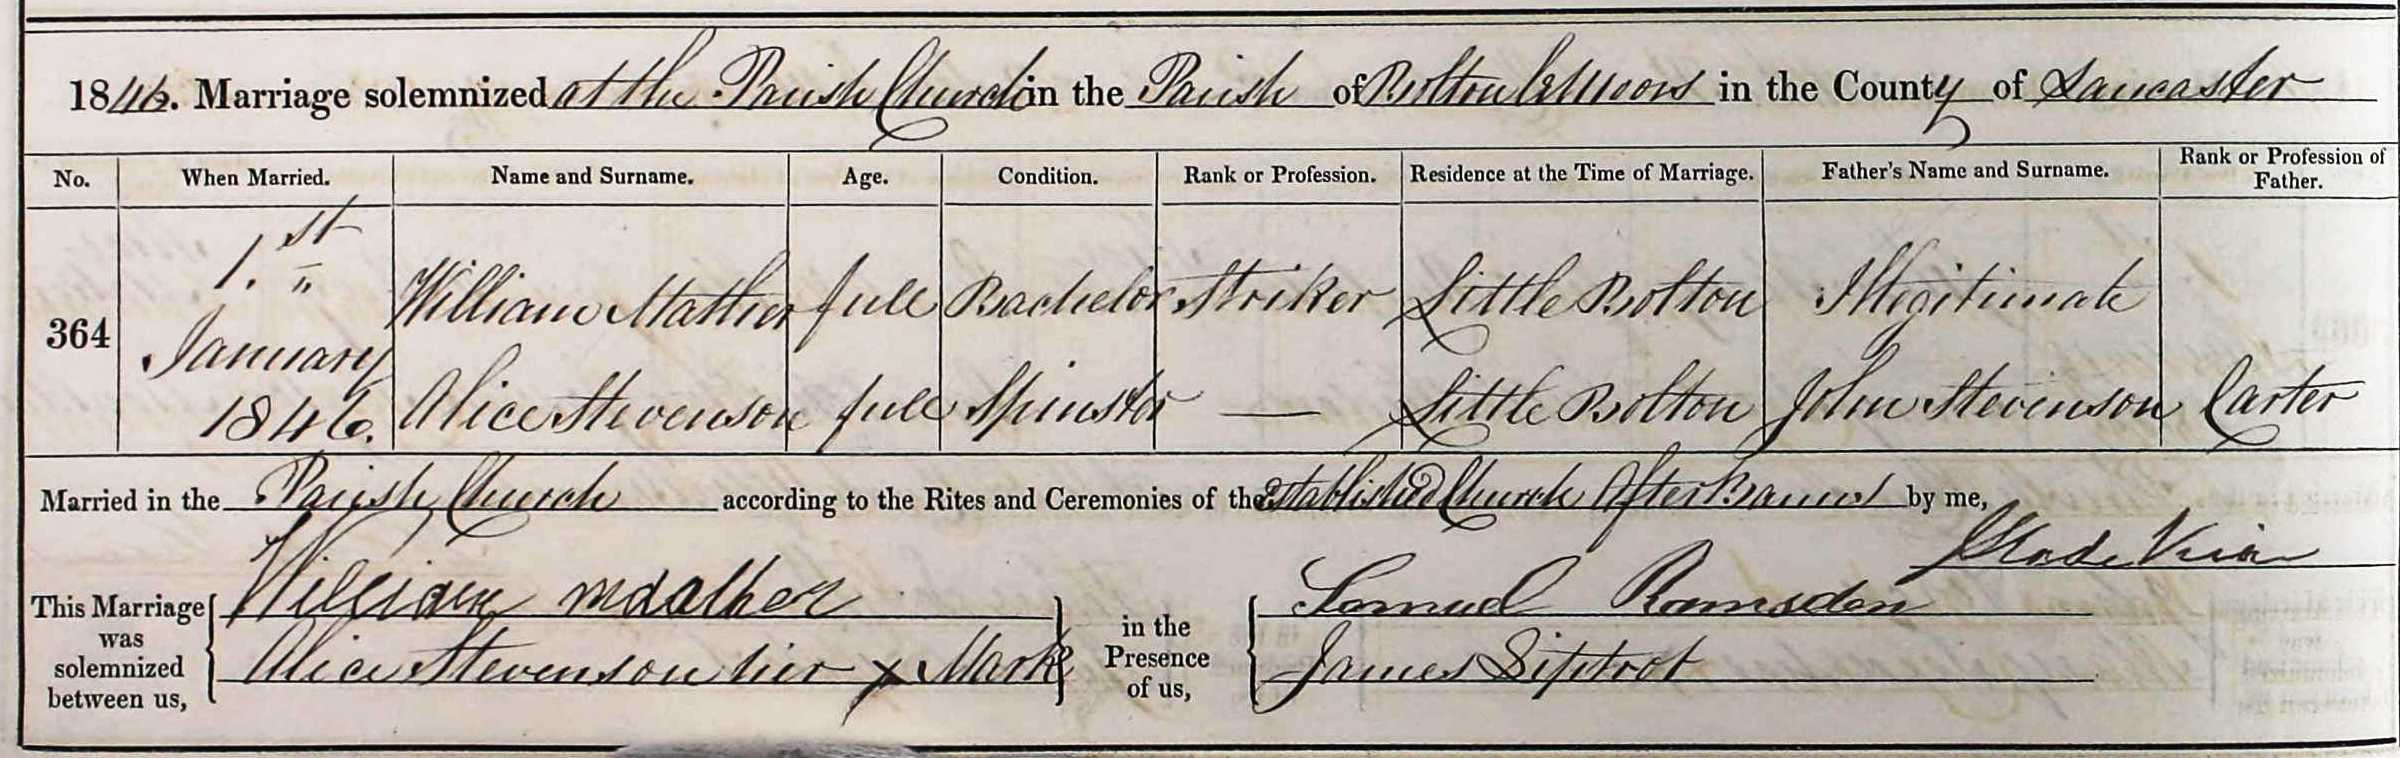 1846. Marriage solemnized at the Parish Church in the Parish of Bolton le Moors in the County of Lancaster
No. When Married. Name and Surname. Age. Condition. Rank or Profession. Residence at the Time of Marriage. Father's Name and Surname. Rank or Profession of Father.
364 1.st January 1846. William Mather full Bachelor Striker Little Bolton Illegitimate
Alice Stevenson full Spinster — Little Bolton John Stevenson Carter
Married in the Parish Church according to the Rites and Ceremonies of the Established Church After Banns by me,
Slade Vicar
This Marriage was solemnized between us, William mdather in the Presence of us, Samuel Ramsden
Alice Stevenson her x Mark James Siptrot